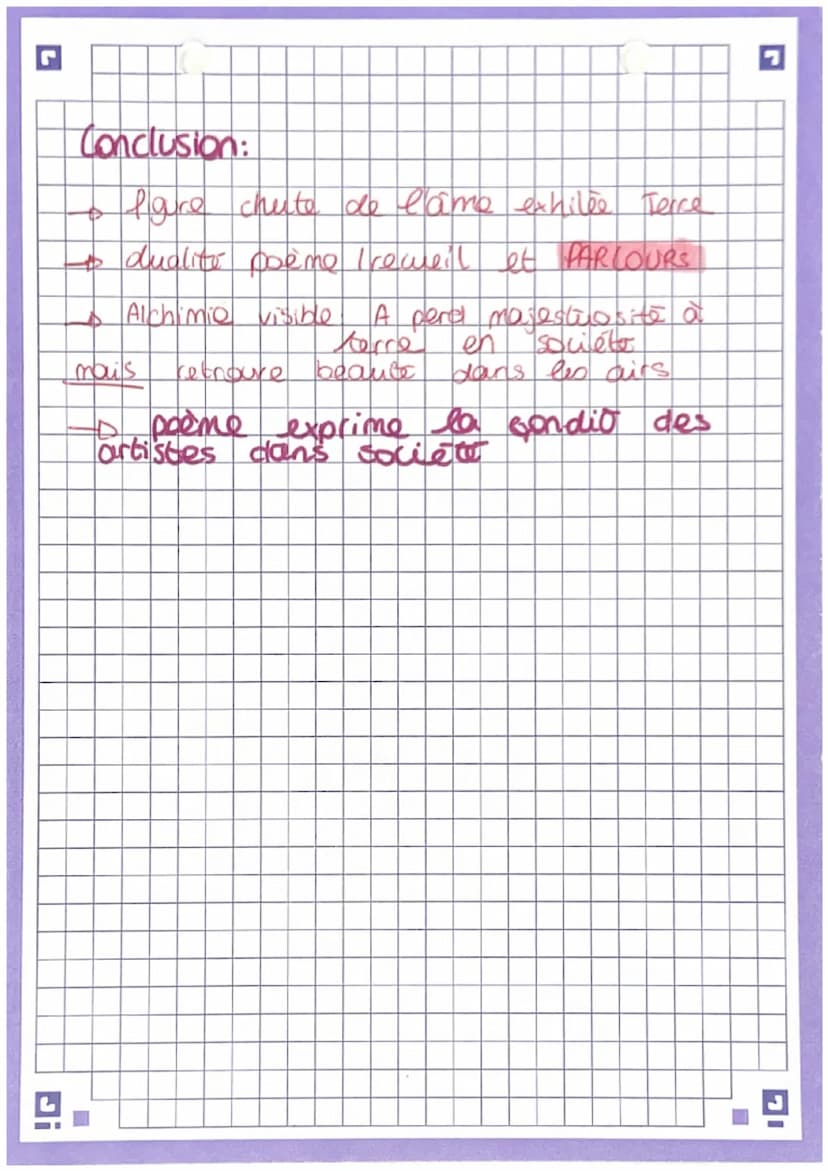 Conclusion:
→ figure chute de l'âme exhilée Terre
→ dualité poème / recueil et PARCOURS
→ Alchimie visible A perd majestuosité à
terre en société
mais retrouve beauté dans les airs
→ poème exprime la condit° des
artistes dans société